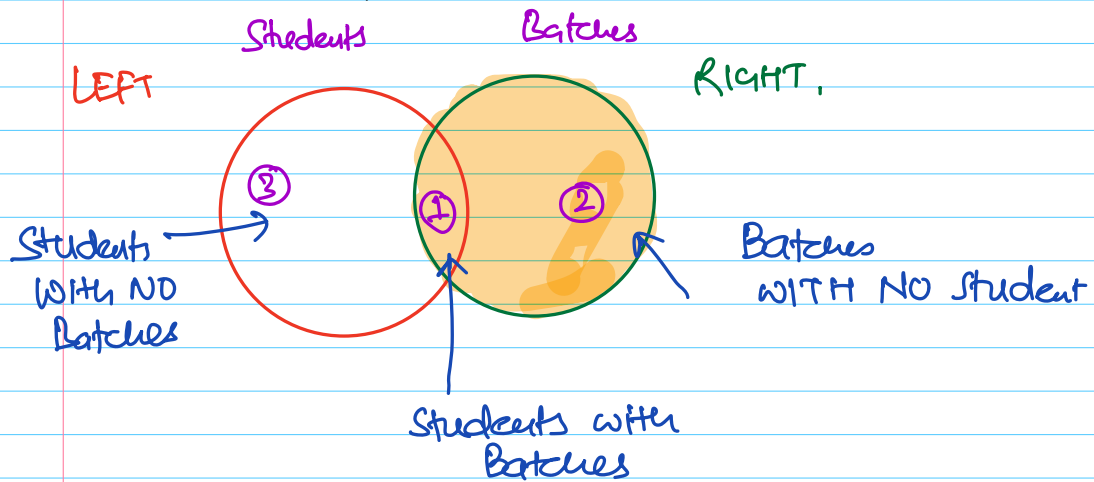 Students
Batches
LEFT
RIGHT.
3
1
2
Students
With NO
Batches
Batches
WITH NO Student
Students with
Batches